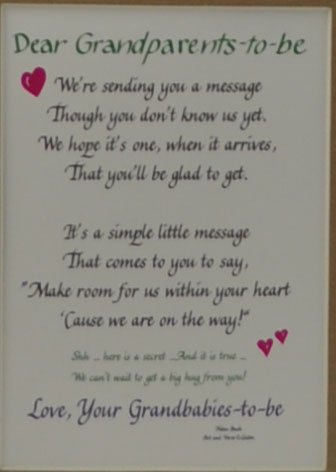 Dear Grandparents-to-be
We're sending you a message
Though you don't know us yet.
We hope it's one, when it arrives,
That you'll be glad to get.
It's a simple little message
That comes to you to say,
"Make room for us within your heart
'Cause we are on the way!"
Shh ... here is a secret ... And it is true ...
We can't wait to get a big hug from you!
Love, Your Grandbabies-to-be